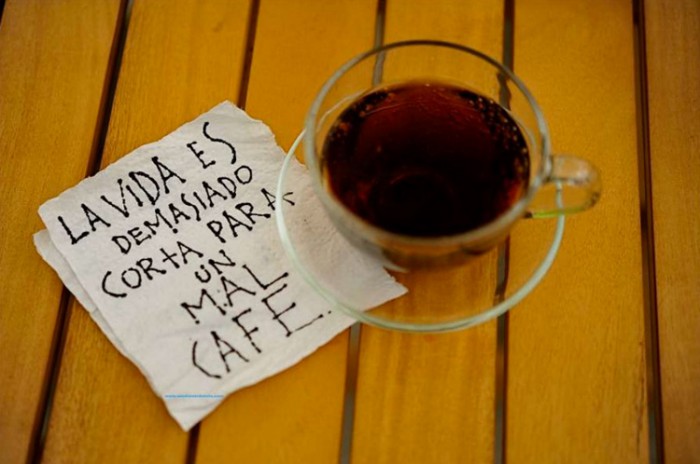 LA VIDA ES
DEMASIADO
CORTA PARA
UN
MAL
CAFÉ.